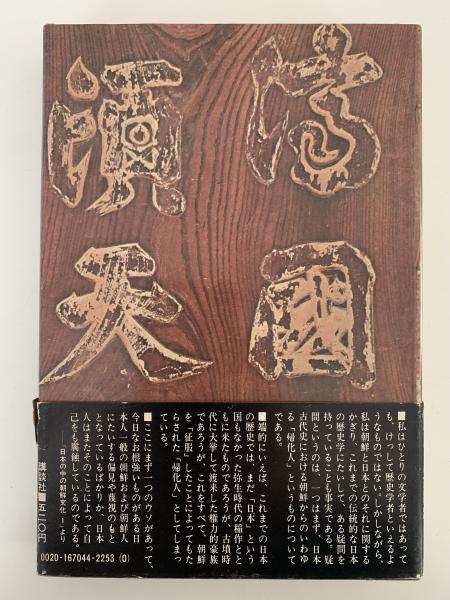 國
天
■私はひとりの文学者ではあって
も、けっして歴史学者といえるよ
うなものではない。しかしながら、
私は朝鮮と日本とのそれに関する
かぎり、これまでの伝統的な日本
の歴史学にたいして、ある疑問を
持っていることも事実である。疑
問というのは、一つはまず、日本
古代史における朝鮮からのいわゆ
る「帰化人」というものについて
である。
■端的にいえば、これまでの日本
の歴史では、まだ「日本」という
国もなかった弥生時代の稲作とと
もに来たものであろうが、古墳時
代に大挙して渡来した権力的豪族
であろうが、これをすべて、朝鮮
を「征服」したことによってもた
らされた「帰化人」としてしまっ
ている。
■ここにまず一つのウソがあって、
今日なお根強いものがある日
本人一般の朝鮮および朝鮮人
にたいする偏見や蔑視のもと
となっているばかりか、日本
人はまたそのことによって自
己をも腐蝕しているのである。
―「日本の中の朝鮮文化 1」より
講談社■五二〇円
0020-167044-2253 (0)